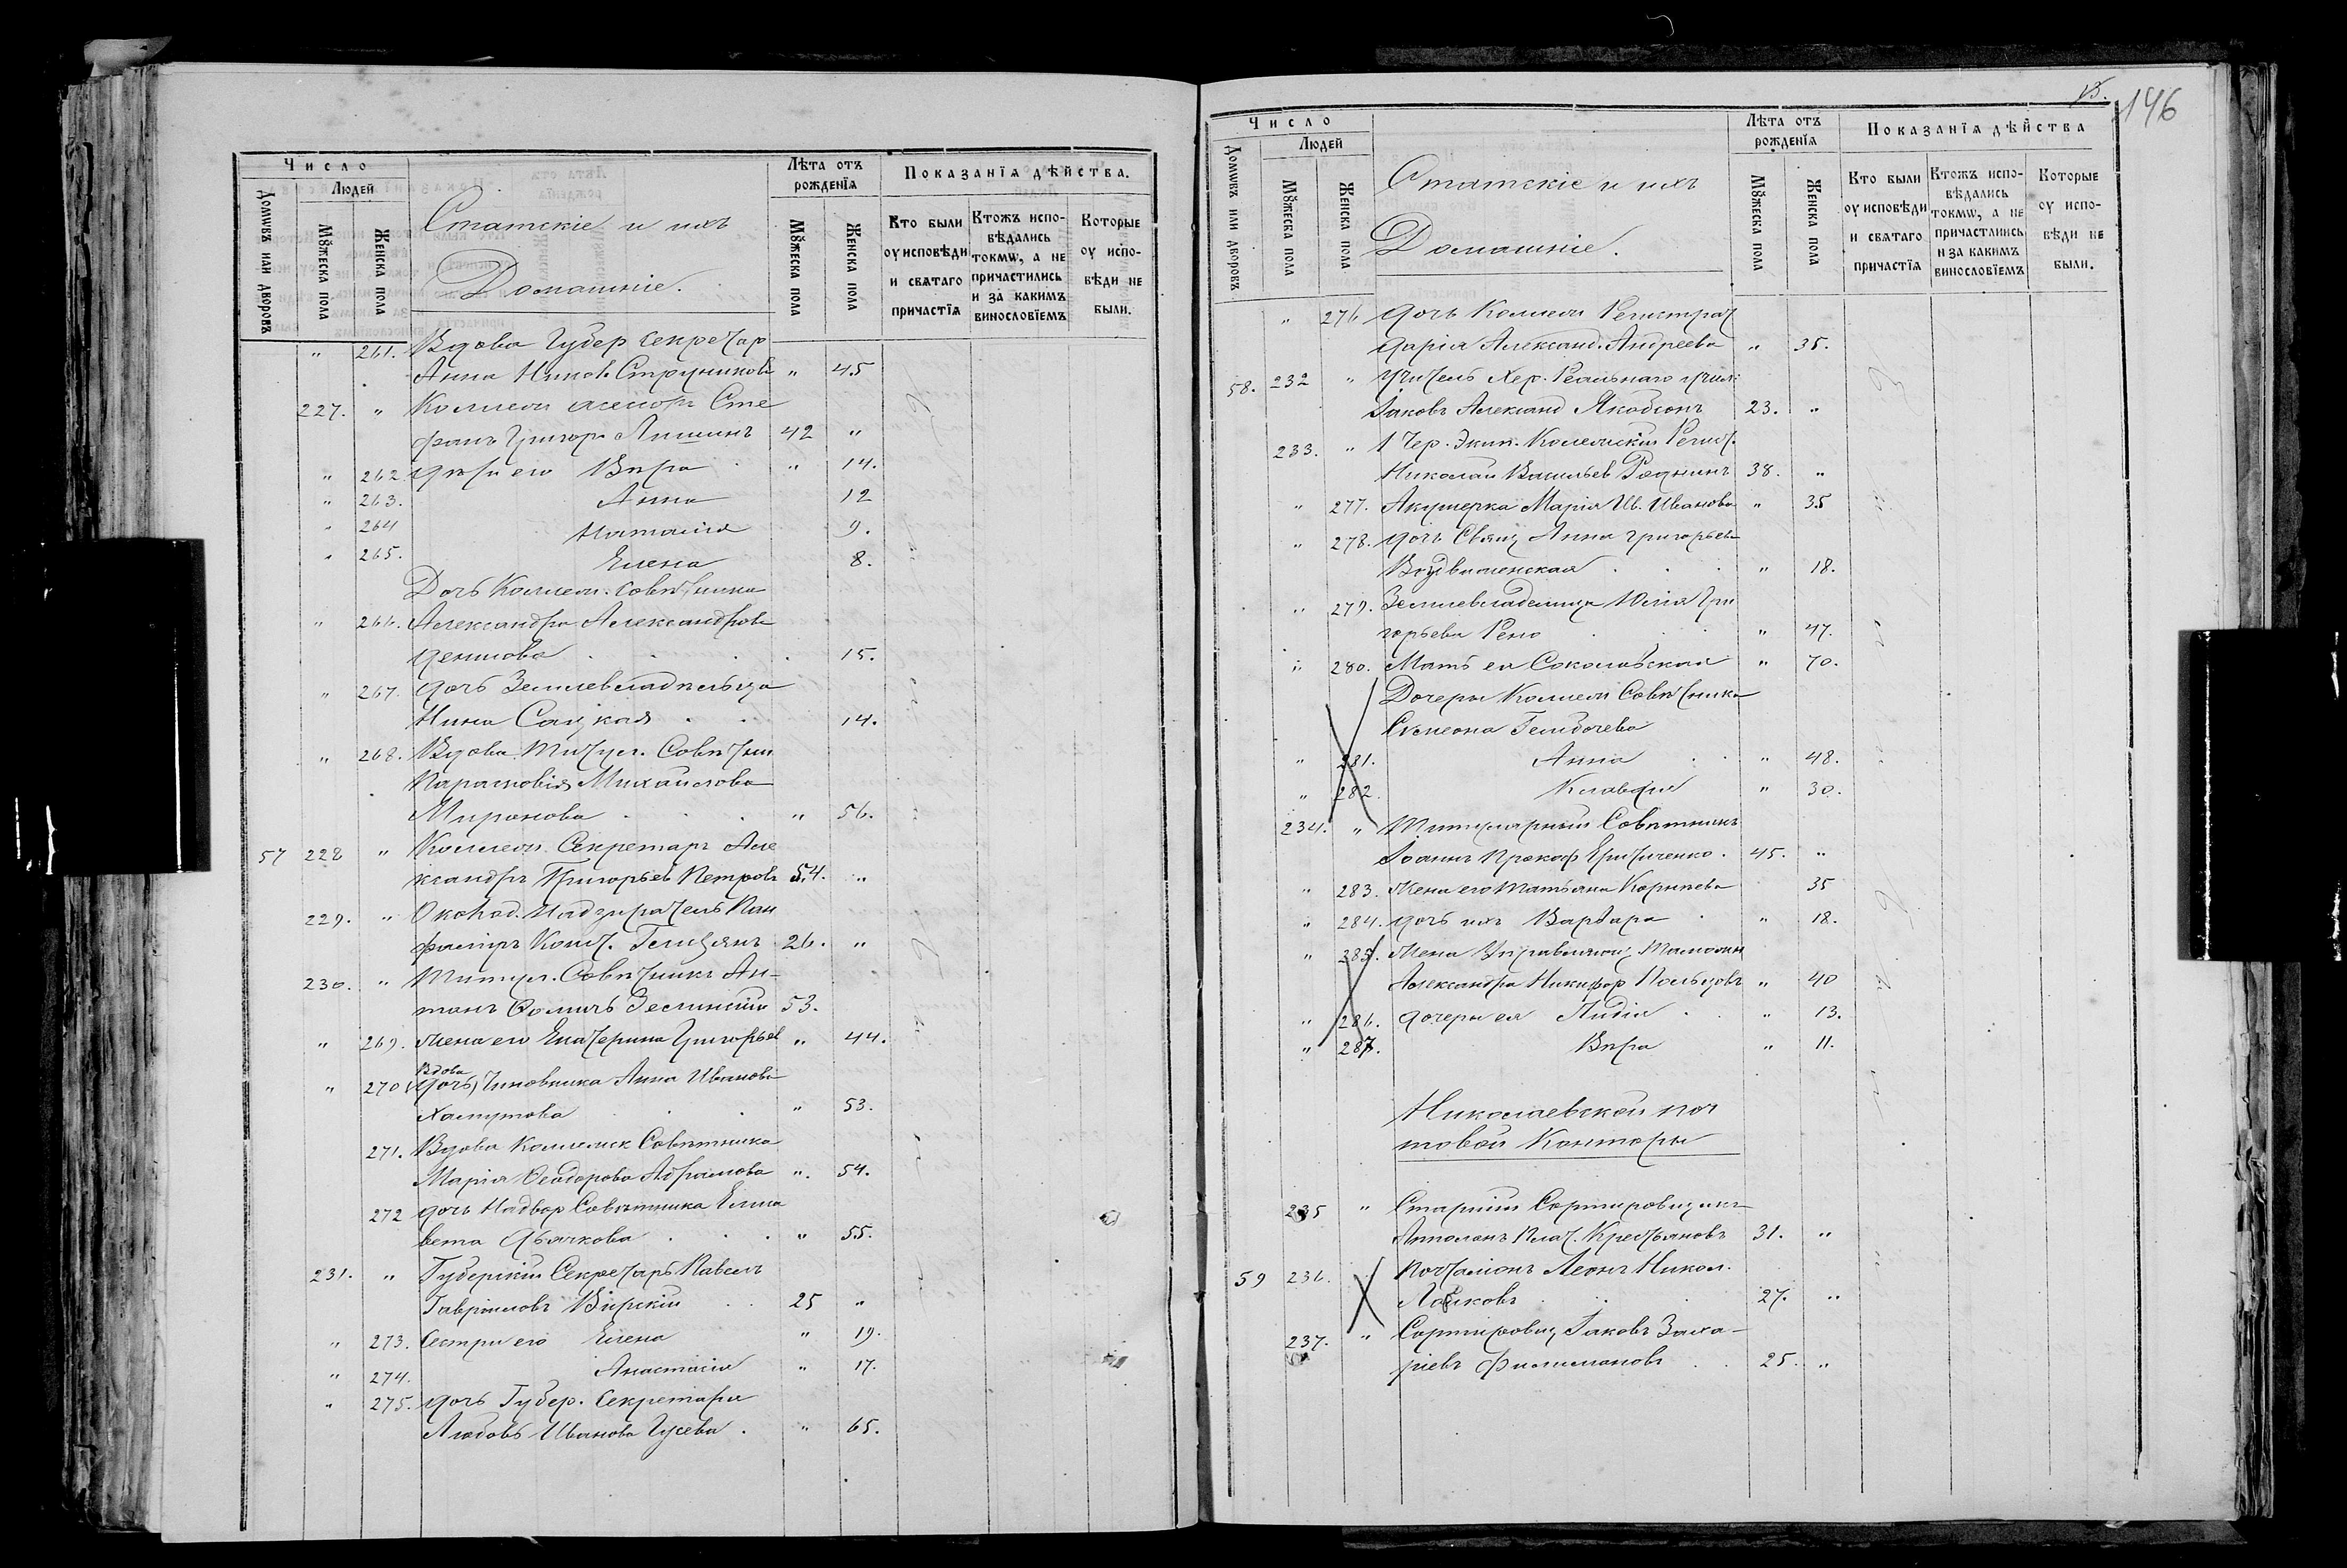 Число
Людей
Домѡвъ или дворовъ
Мꙋжеска пола
Женска пола
Статскіе и ихъ
Домашніе.
Лѣта отъ
рожденїя
Мꙋжеска пола
Женска пола
Показанїѧ дѣйства.
Кто были
оу исповѣди
и свѧтаго
причастїѧ
Ктожъ испо-
вѣдались
токмѡ, а не
причастились
и за какимъ
винословїемъ
Которые
оу испо-
вѣди не
были.
" 261. Вдова Губер Секретар
Анна " 45
227. " Коллеж асессоръ Сте
фанъ Григор Лишинъ 42 "
" 262. Дѣти его Вѣра " 14.
" 263. Анна 12
" 264 Наталія 9.
" 265. Елена 8.
Дочь Коллеж. Совѣтника
" 266. Александра Александрова
Денисова 15.
" 267. Дочь Землевладѣльца
Нина 14.
" 268. Вдова Титул. Совѣтни
Парасковія Михайлова
Миронова " 56.
57 228 " Коллеж. Секретарь Але
ксандръ Григорьев Петровъ 54. "
229. " Околод. Надзиратель Пан
26. "
230. " Титул. Совѣтникъ Ан-
тонъ Ѳомичъ Зеленскій 53.
" 269. Жена его Екатерина Григорьев " 44.
Вдова
" 270 (Дочь) Чиновника Анна Иванова
Хамутова " 53.
271. Вдова Коллежск Совѣтника
Марія Ѳеодорова Абрамова " 54.
272 Дочь Надвор Совѣтника Елиза
вета Дьячкова " 55.
231. " Губерскій Секретарь Павелъ
Гавріиловъ Вирскій 25 "
" 273. Сестры его Елена " 19.
" 274. Анастасія " 17.
" 275. Дочь Губер. Секретаря
Любовь Иванова Гусева. " 65.
13.
146
Число
Людей
Домѡвъ или дворовъ
Мꙋжеска пола
Женска пола
Статскіе и ихъ
Домашніе.
Лѣта отъ
рожденїя
Мꙋжеска пола
Женска пола
Показанїѧ дѣйства
Кто были
оу исповѣди
и свѧтаго
причастїѧ
Ктожъ испо-
вѣдались
токмѡ, а не
причастлись
и за какимъ
винословїемъ
Которые
оу испо-
вѣди не
были.
" 276 Дочь Коллеж Регистрат
Дарія Александ. Андреева " 35.
58. 232 " Учитель Хер. Реальнаго учил:
Іаковъ Александ Якобсонъ 23. "
233. " 1 Чер. Экип. Коллежскій Регист.
Николай Васильев Роднинъ 38. "
" 277. Акушерка Марія Ив. Иванова " 35
" 278. Дочь Свящ Анна Григорьева
Воздвиженская " 18.
" 279. Землевладелица Юлія Гри
горьева Рено " 47.
" 280. Мать ея Соколовская " 70.
Дочери Коллеж Совѣтника
Сумеона
" 281. Анна " 48.
" 282. Клавдія " 30.
234. " Титулярный Совѣтникъ
Іоаннъ Прокоф Гритченко. 45. "
" 283. Жена его Татьяна Корнѣева 35
" 284. Дочь ихъ Варвара " 18.
" 285. Жена Управляющ Таможн
Александра Никифор " 40
" 286. Дочери ея Лидія " 13.
" 287. Вѣра " 11.
Николаевской поч
товой Конторы
235 " Старшій Сортировщикъ
Апполонъ Плат. Крестьяновъ 31. "
59 236. Почталіонъ Леонъ Никол.
27. "
237. " Сортировщ Іаковъ Заха-
ріевъ Филимоновъ 25. "